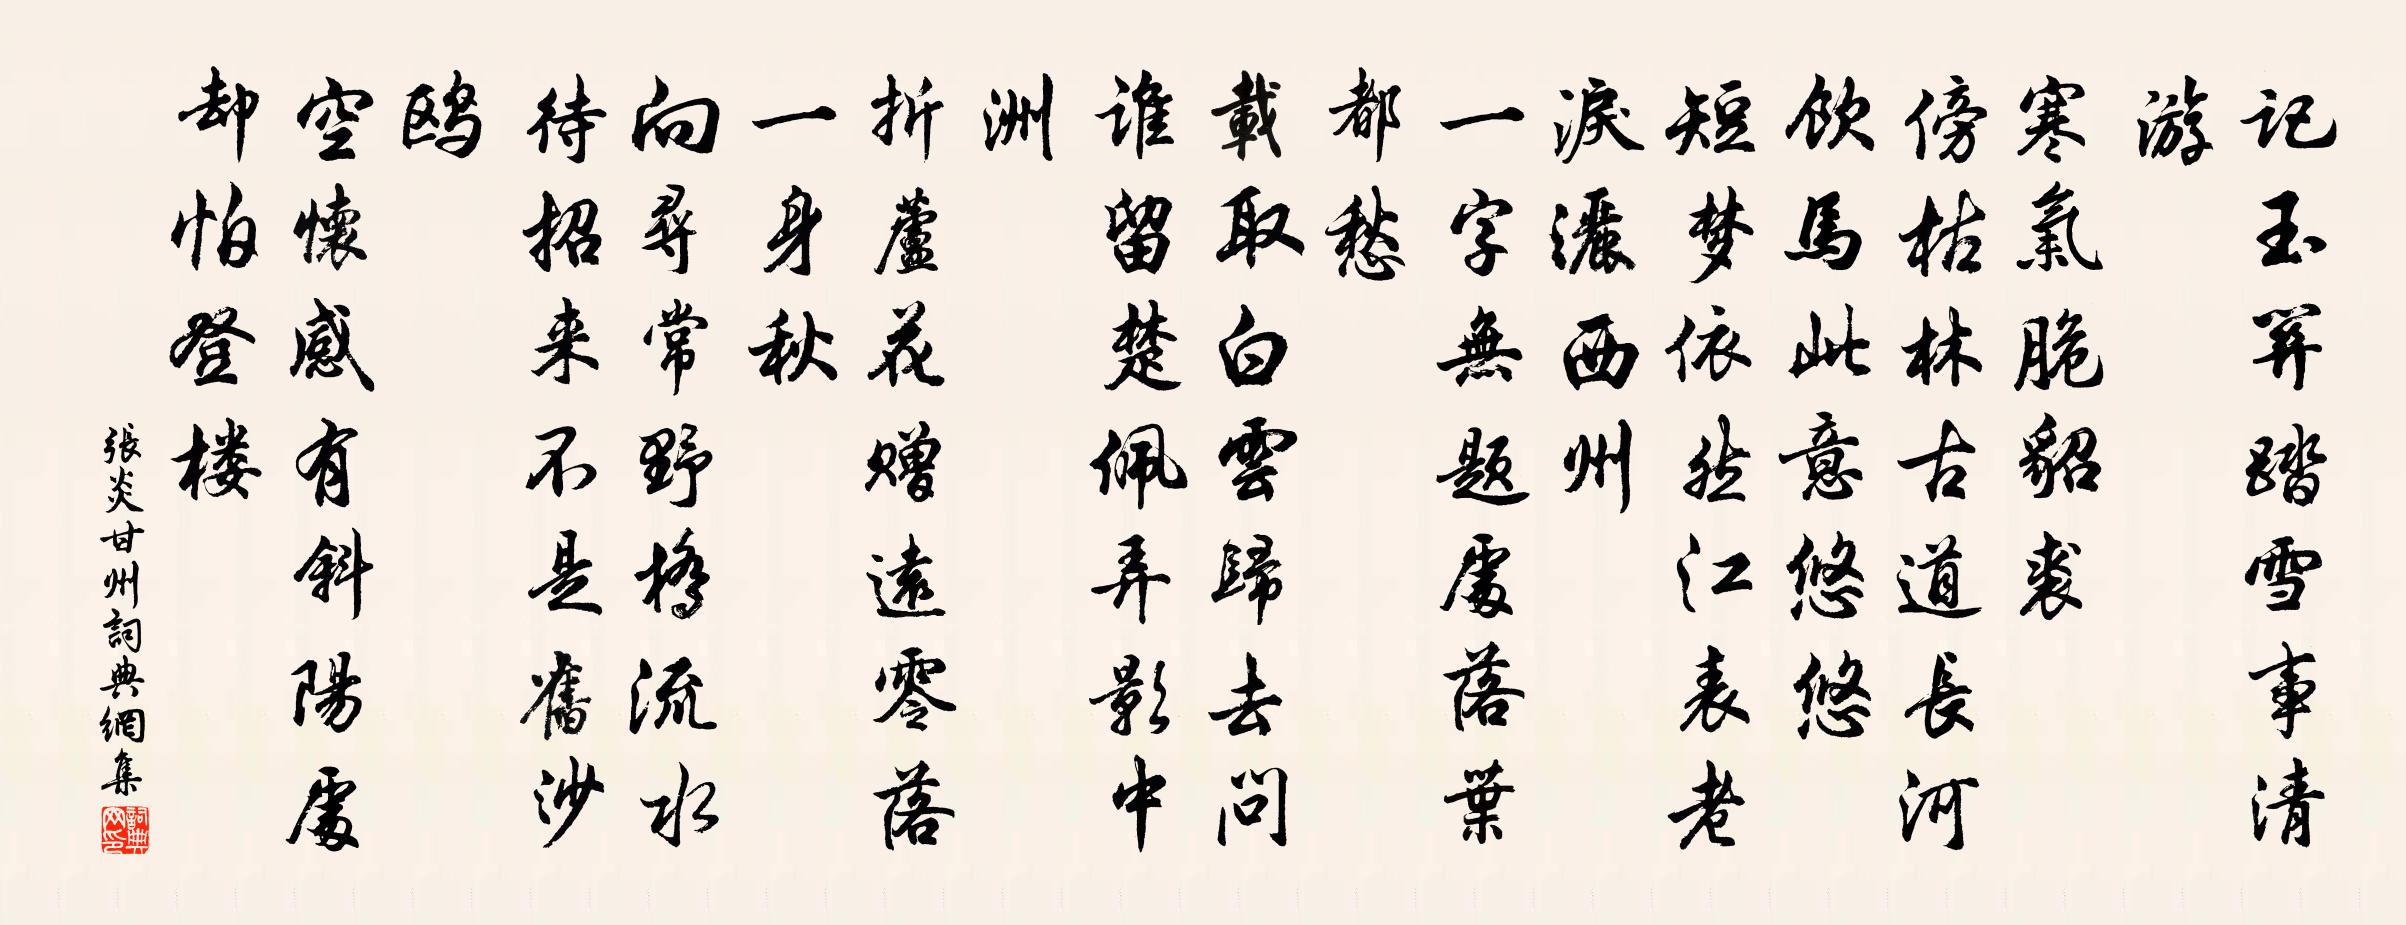 记玉関踏雪事清
游
寒氣脆貂裘
傍枯林古道長河
飲馬此意悠悠
短梦依然江表老
淚灑西州
一字無題處落葉
都愁
載取白雲歸去問
誰留楚佩弄影中
洲
折蘆花赠遠零落
一身秋
向尋常野橋流水
待招来不是舊沙
鸥
空懷感有斜陽處
却怕登楼
張炎甘州詞典網集
詞典網印